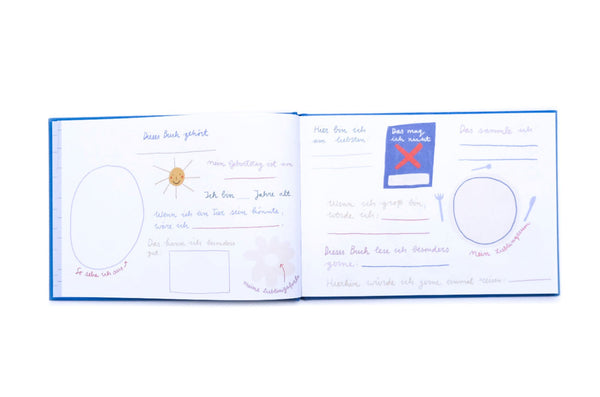 Dieses Buch gehört
Mein Geburtstag ist am
Ich bin Jahre alt.
Wenn ich ein Tier sein könnte,
wäre ich
Das kann ich besonders
gut:
So sehe ich aus!
meine Lieblingsfarbe
Hier bin ich
am liebsten
Das mag
ich nicht
Das sammle ich
Wenn ich groß bin,
werde ich:
Mein Lieblingsessen
Dieses Buch lese ich besonders
gerne:
Hierhin würde ich gerne einmal reisen: